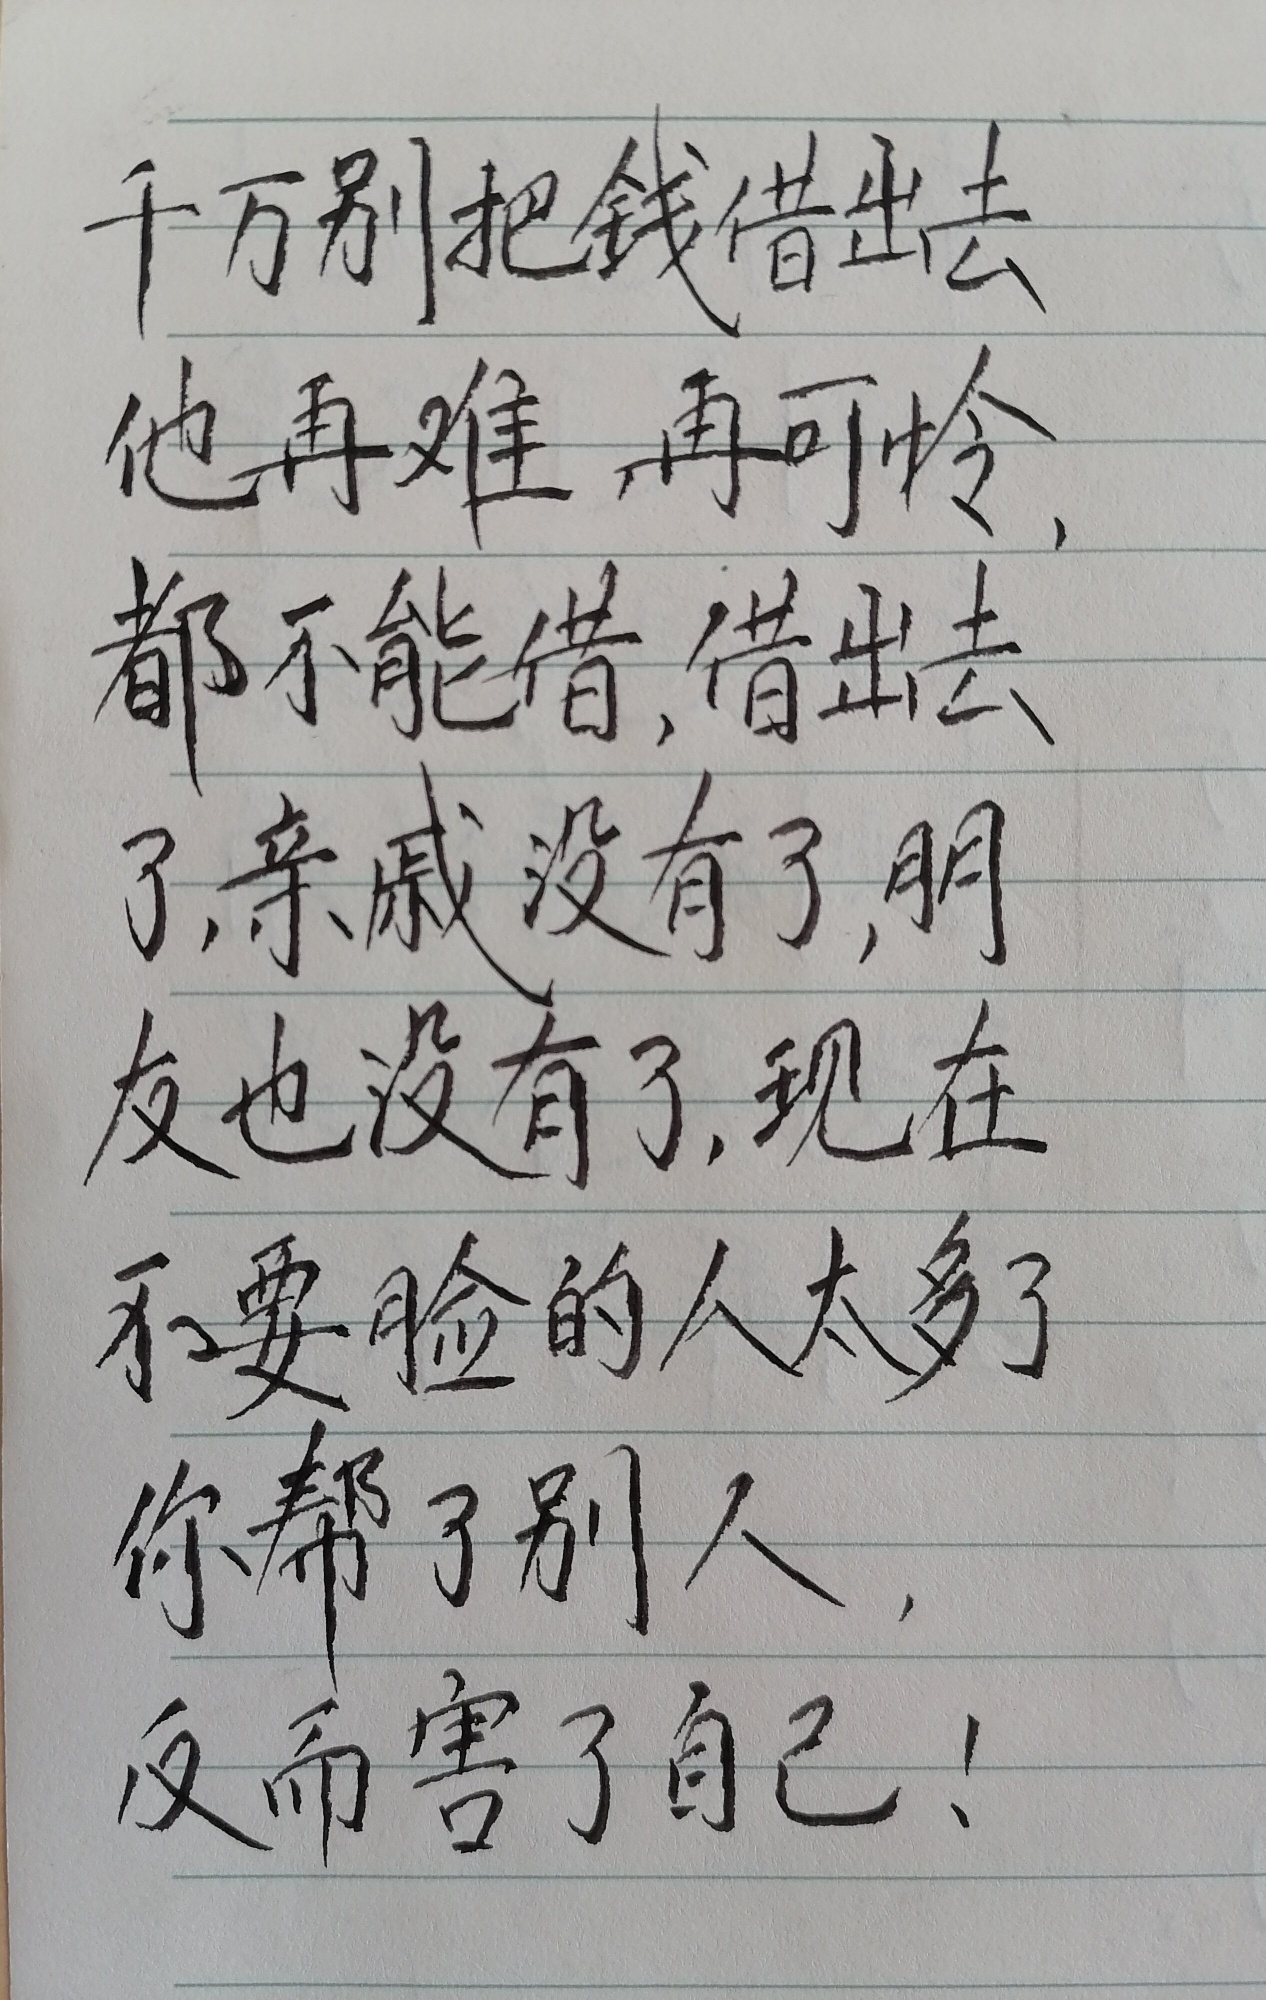 千万别把钱借出去
他再难,再可怜,
都不能借,借出去
了,亲戚没有了,朋
友也没有了,现在
不要脸的人太多了
你帮了别人,
反而害了自己!